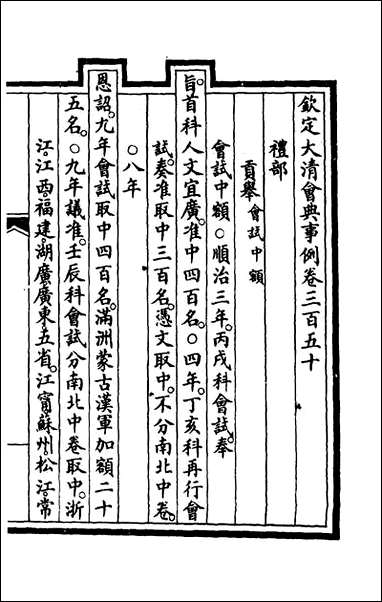 欽定大清會典事例卷三百五十
禮部
貢舉會試中額
會試中額○順治三年。丙戌科會試。奉
旨。首科人文宜廣。准中四百名。○四年。丁亥科再行會
試。奏准取中三百名。憑文取中。不分南北中卷。
○八年
恩詔。九年會試取中四百名。滿洲蒙古漢軍加額二十
五名。○九年議准。壬辰科會試分南北中卷取中。浙
江。江西。福建。湖廣。廣東五省。江甯。蘇州。松江。常